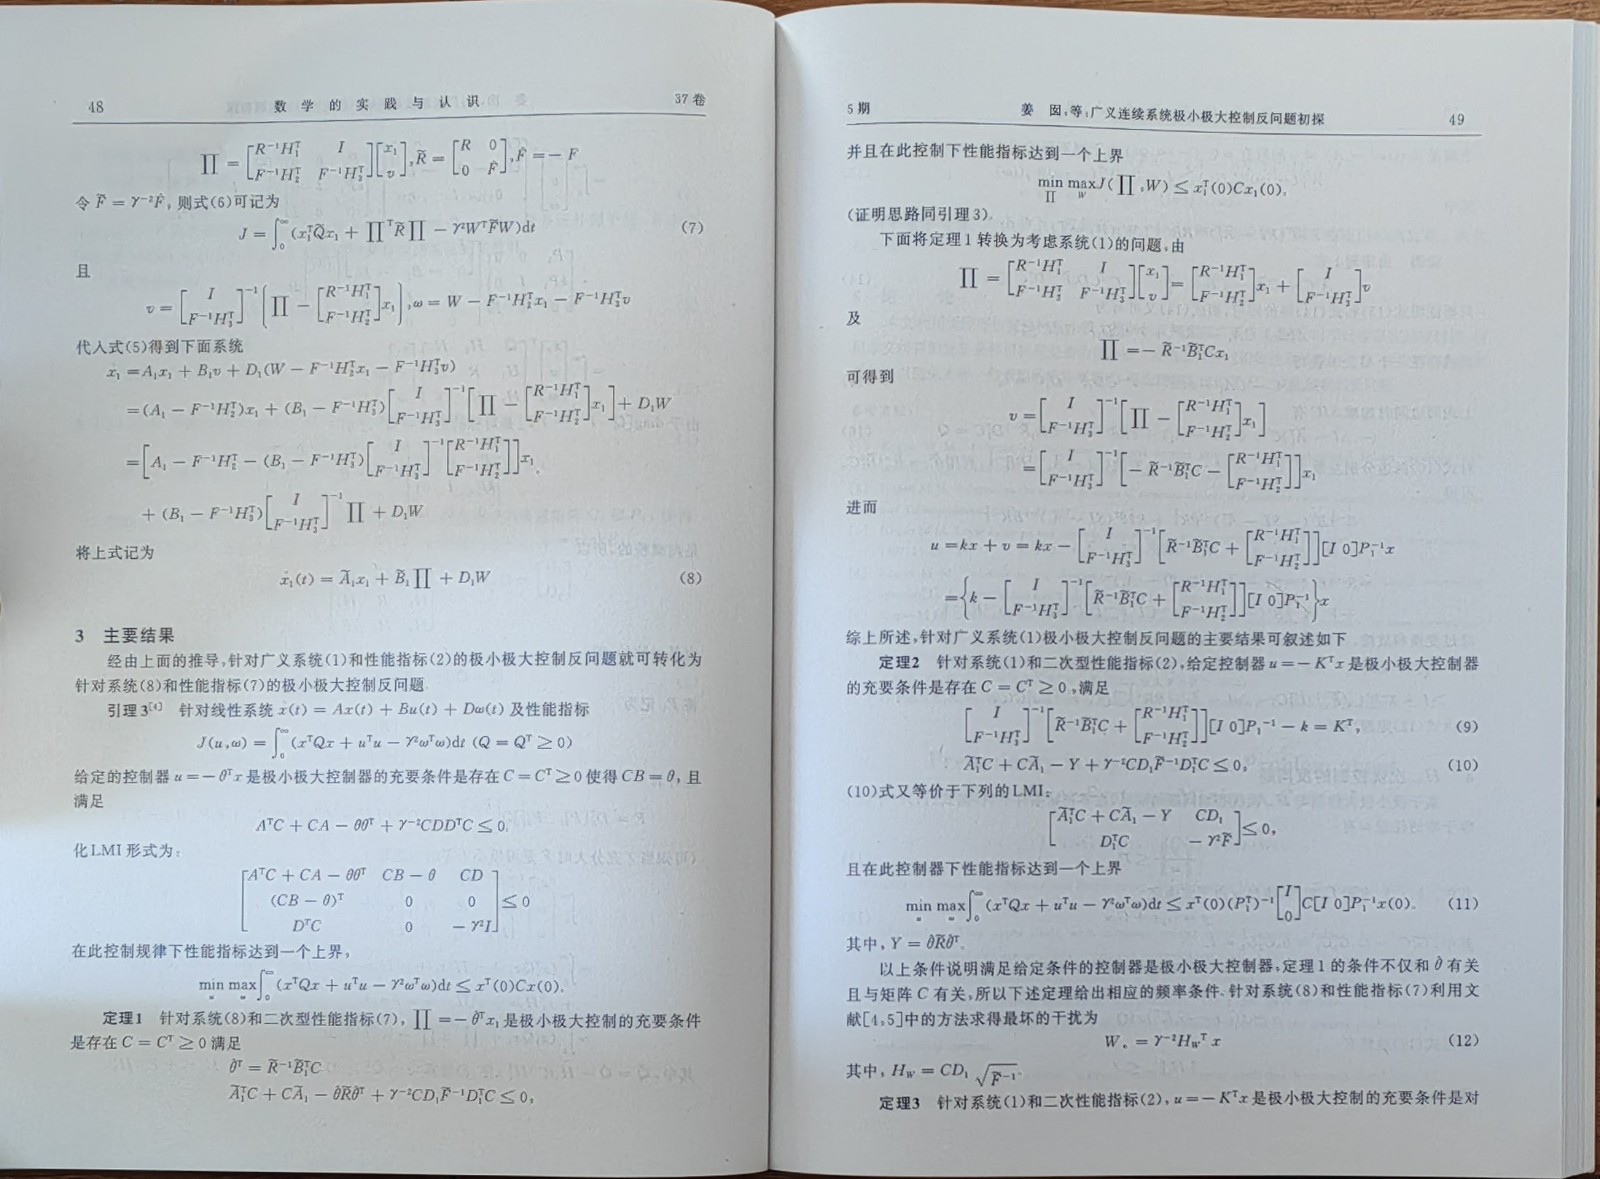 48 数学的实践与认识 37卷
∏ = [R⁻¹H₁ᵀ I; F⁻¹H₂ᵀ F⁻¹H₃ᵀ][x₁; v], R̃ = [R 0; 0 F̂], F̂ = − F
令 F̃ = γ⁻²F̂, 则式(6)可记为
J = ∫₀^∞ (x₁ᵀQ̃x₁ + ∏ᵀR̃∏ − γ²WᵀF̃W)dt (7)
且
v = [I; F⁻¹H₃ᵀ]⁻¹{∏ − [R⁻¹H₁ᵀ; F⁻¹H₂ᵀ]x₁}, ω = W − F⁻¹H₂ᵀx₁ − F⁻¹H₃ᵀv
代入式(5)得到下面系统
ẋ₁ = A₁x₁ + B₁v + D₁(W − F⁻¹H₂ᵀx₁ − F⁻¹H₃ᵀv)
= (A₁ − F⁻¹H₂ᵀ)x₁ + (B₁ − F⁻¹H₃ᵀ)[I; F⁻¹H₃ᵀ]⁻¹[∏ − [R⁻¹H₁ᵀ; F⁻¹H₂ᵀ]x₁] + D₁W
= [A₁ − F⁻¹H₂ᵀ − (B₁ − F⁻¹H₃ᵀ)[I; F⁻¹H₃ᵀ]⁻¹[R⁻¹H₁ᵀ; F⁻¹H₂ᵀ]]x₁
+ (B₁ − F⁻¹H₃ᵀ)[I; F⁻¹H₃ᵀ]⁻¹∏ + D₁W
将上式记为
ẋ₁(t) = Ã₁x₁ + B̃₁∏ + D₁W (8)
3 主要结果
经由上面的推导,针对广义系统(1)和性能指标(2)的极小极大控制反问题就可转化为
针对系统(8)和性能指标(7)的极小极大控制反问题.
引理3[4] 针对线性系统 ẋ(t) = Ax(t) + Bu(t) + Dω(t) 及性能指标
J(u,ω) = ∫₀^∞ (xᵀQx + uᵀu − γ²ωᵀω)dt (Q = Qᵀ ≥ 0)
给定的控制器 u = − θᵀx 是极小极大控制器的充要条件是存在 C = Cᵀ ≥ 0 使得 CB = θ, 且
满足
AᵀC + CA − θθᵀ + γ⁻²CDDᵀC ≤ 0,
化LMI形式为:
[AᵀC + CA − θθᵀ CB − θ CD; (CB − θ)ᵀ 0 0; DᵀC 0 − γ²I] ≤ 0
在此控制规律下性能指标达到一个上界,
min max ∫₀^∞ (xᵀQx + uᵀu − γ²ωᵀω)dt ≤ xᵀ(0)Cx(0).
定理1 针对系统(8)和二次型性能指标(7), ∏ = − θ̂ᵀx₁ 是极小极大控制的充要条件
是存在 C = Cᵀ ≥ 0 满足
θ̂ᵀ = R̃⁻¹B̃₁ᵀC
Ã₁ᵀC + CÃ₁ − θ̂R̃θ̂ᵀ + γ⁻²CD₁F̃⁻¹D₁ᵀC ≤ 0,
5期 姜 囡,等:广义连续系统极小极大控制反问题初探 49
并且在此控制下性能指标达到一个上界
min_∏ max_W J(∏,W) ≤ x₁ᵀ(0)Cx₁(0).
(证明思路同引理3).
下面将定理1转换为考虑系统(1)的问题,由
∏ = [R⁻¹H₁ᵀ I; F⁻¹H₂ᵀ F⁻¹H₃ᵀ][x₁; v] = [R⁻¹H₁ᵀ; F⁻¹H₂ᵀ]x₁ + [I; F⁻¹H₃ᵀ]v
及
∏ = − R̃⁻¹B̃₁ᵀCx₁
可得到
v = [I; F⁻¹H₃ᵀ]⁻¹[∏ − [R⁻¹H₁ᵀ; F⁻¹H₂ᵀ]x₁]
= [I; F⁻¹H₃ᵀ]⁻¹[− R̃⁻¹B̃₁ᵀC − [R⁻¹H₁ᵀ; F⁻¹H₂ᵀ]]x₁
进而
u = kx + v = kx − [I; F⁻¹H₃ᵀ]⁻¹[R̃⁻¹B̃₁ᵀC + [R⁻¹H₁ᵀ; F⁻¹H₂ᵀ]][I 0]P₁⁻¹x
= {k − [I; F⁻¹H₃ᵀ]⁻¹[R̃⁻¹B̃₁ᵀC + [R⁻¹H₁ᵀ; F⁻¹H₂ᵀ]][I 0]P₁⁻¹}x
综上所述,针对广义系统(1)极小极大控制反问题的主要结果可叙述如下.
定理2 针对系统(1)和二次型性能指标(2),给定控制器 u = − Kᵀx 是极小极大控制器
的充要条件是存在 C = Cᵀ ≥ 0, 满足
[I; F⁻¹H₃ᵀ]⁻¹[R̃⁻¹B̃₁ᵀC + [R⁻¹H₁ᵀ; F⁻¹H₂ᵀ]][I 0]P₁⁻¹ − k = Kᵀ, (9)
Ã₁ᵀC + CÃ₁ − Y + γ⁻²CD₁F̃⁻¹D₁ᵀC ≤ 0, (10)
(10)式又等价于下列的LMI:
[Ã₁ᵀC + CÃ₁ − Y CD₁; D₁ᵀC − γ²F̃] ≤ 0,
且在此控制器下性能指标达到一个上界
min max ∫₀^∞ (xᵀQx + uᵀu − γ²ωᵀω)dt ≤ xᵀ(0)(P₁ᵀ)⁻¹[I; 0]C[I 0]P₁⁻¹x(0). (11)
其中, Y = θ̂R̃θ̂ᵀ.
以上条件说明满足给定条件的控制器是极小极大控制器,定理1的条件不仅和 θ̂ 有关
且与矩阵 C 有关,所以下述定理给出相应的频率条件. 针对系统(8)和性能指标(7)利用文
献[4,5]中的方法求得最坏的干扰为
W* = γ⁻²H_Wᵀ x (12)
其中, H_W = CD₁ √F̃⁻¹.
定理3 针对系统(1)和二次性能指标(2), u = − Kᵀx 是极小极大控制的充要条件是对